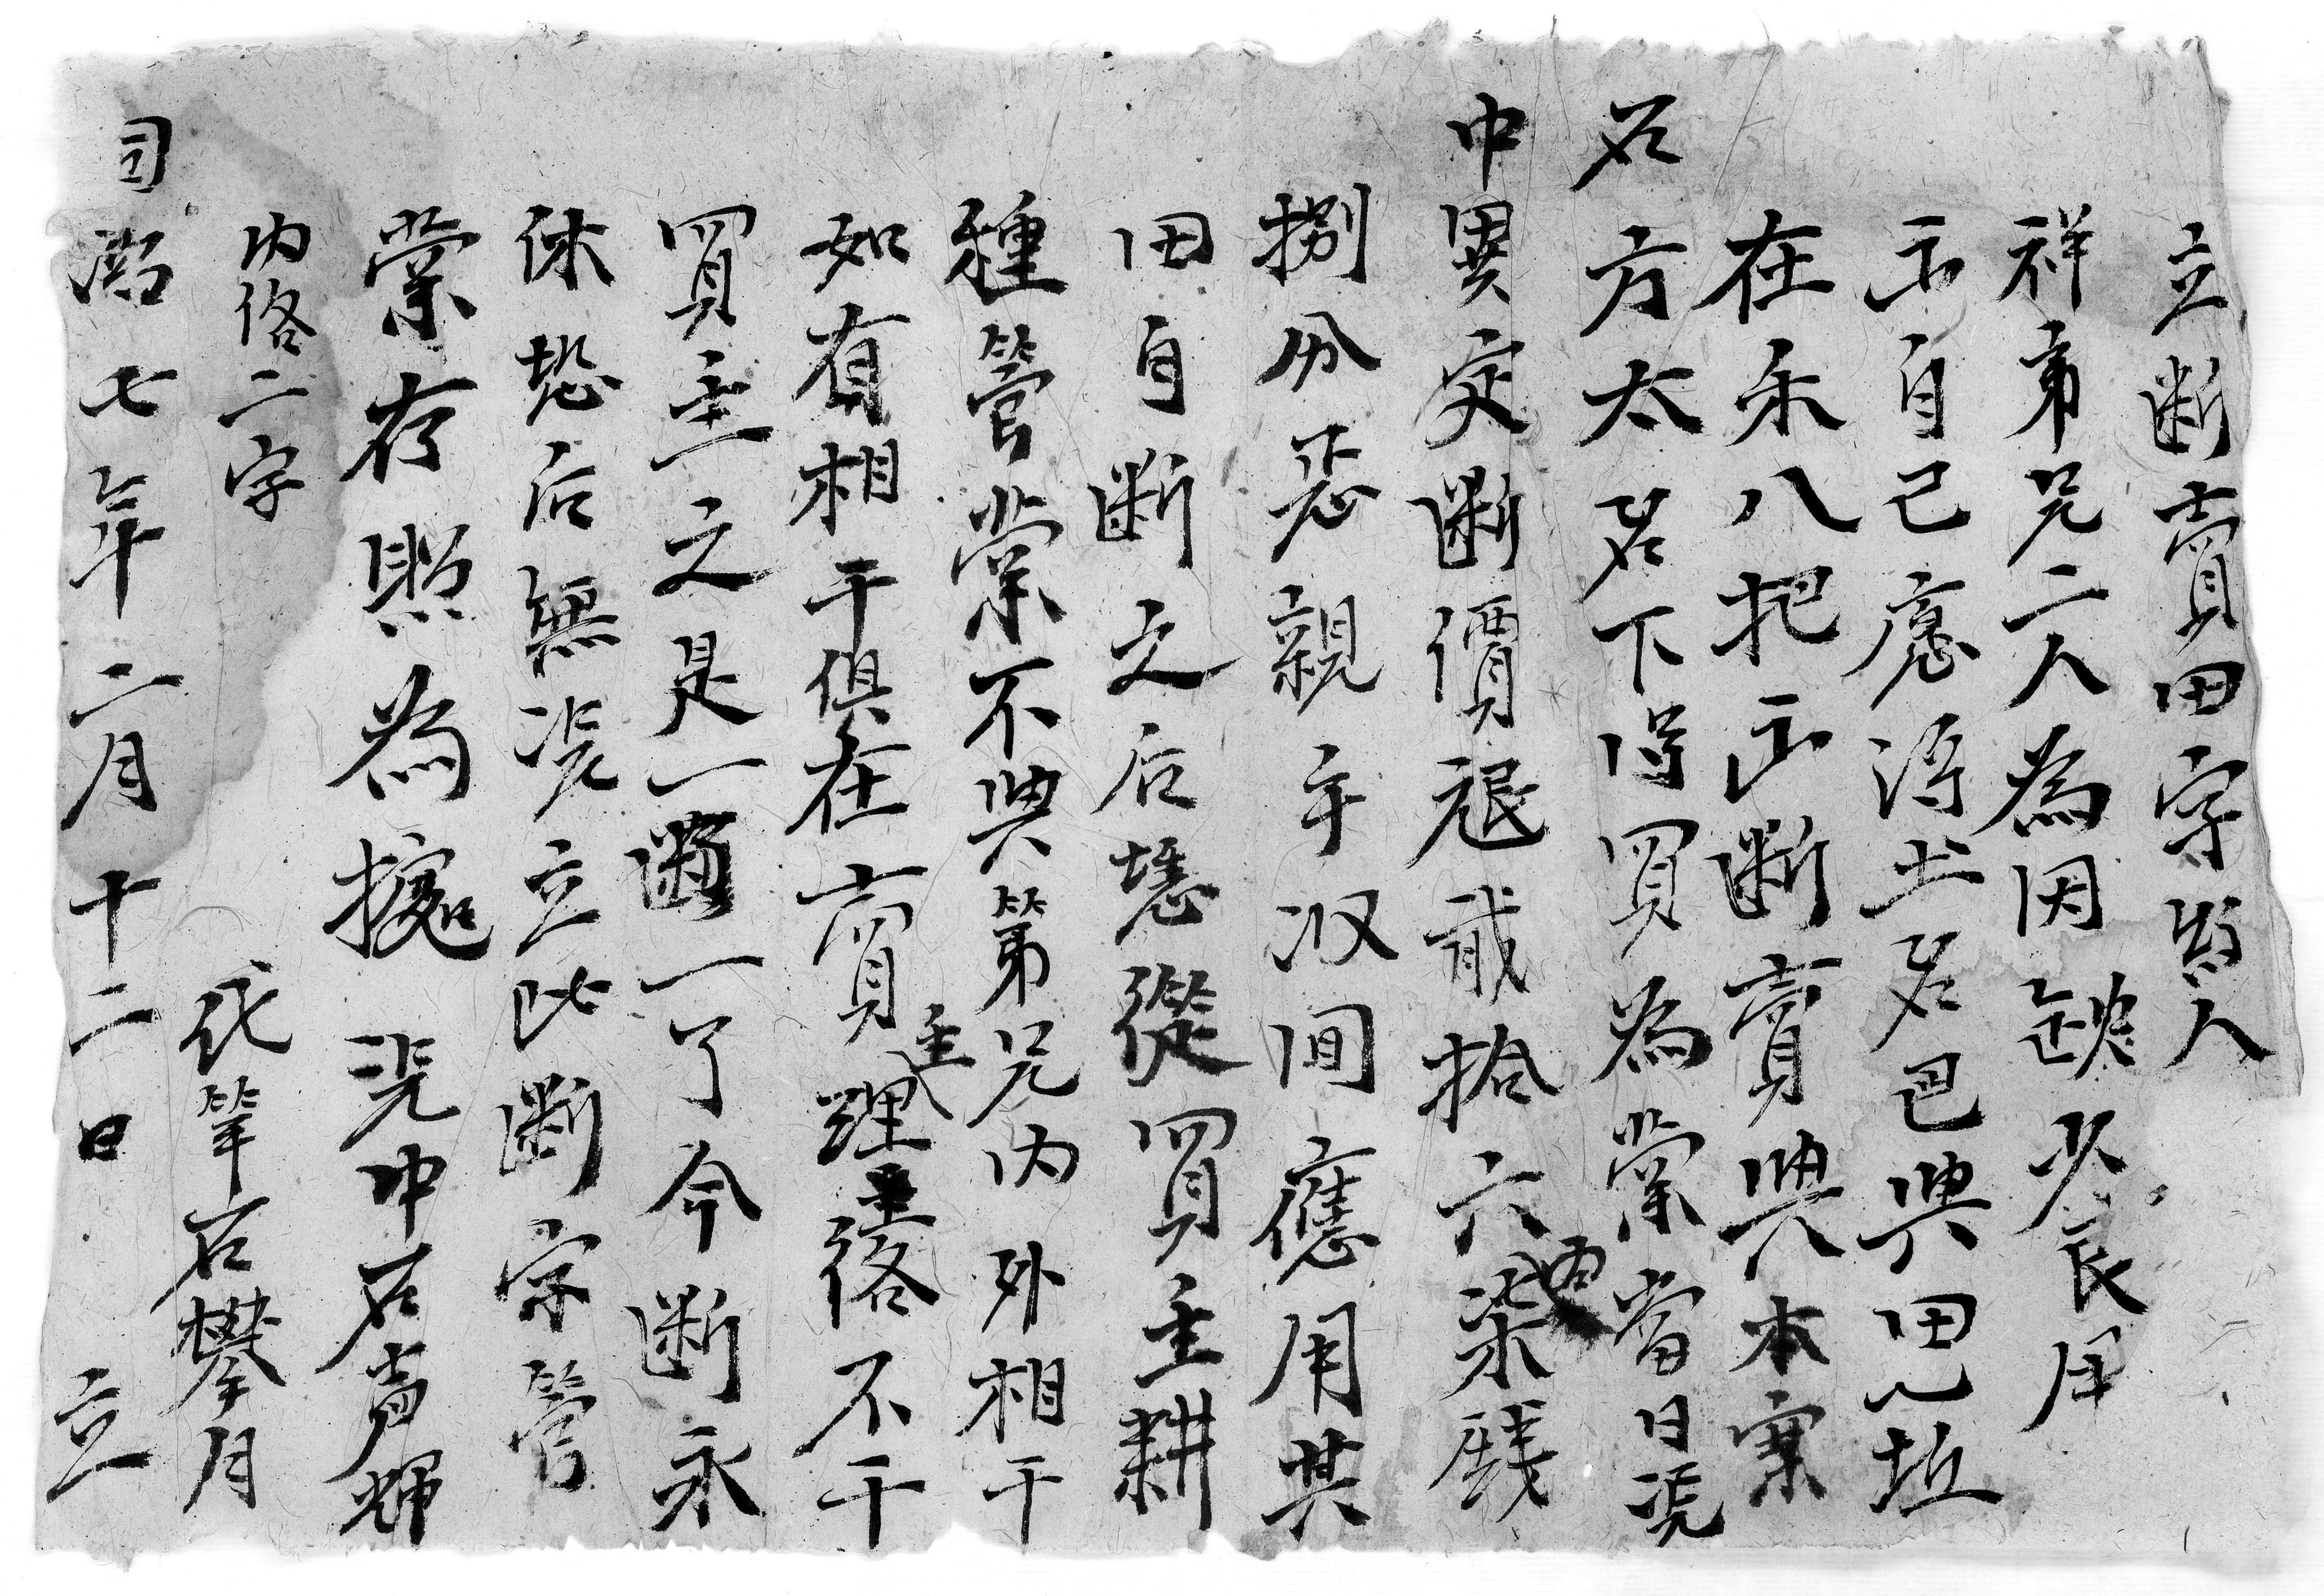 立断賣田字契人
祥弟兄二人為因缺少良用
自己應浔土名邑與田坵
在禾八把断賣與本寨
名方太名下得買為業當日凭
中異定断價艮貳拾六両柒戔
捌分悉親手収囬應用其
田自断之后慿從買主耕
種管業不與弟兄內外相干
如有相干俱在賣主理落不干
買主之是一断一了今断永
休恐后無凭立此断字管
業存照為據 凭中石貴輝
內佫二字 代筆石攀月
同治七年二月十二日 立